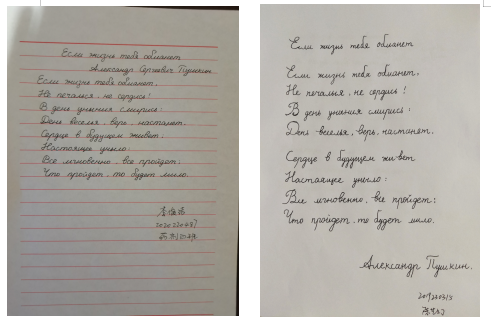 Если жизнь тебя обманет
Александр Сергеевич Пушкин
Если жизнь тебя обманет,
Не печалься, не сердись!
В день уныния смирись:
День веселья, верь, настанет.
Сердце в будущем живет;
Настоящее уныло:
Всё мгновенно, всё пройдет;
Что пройдет, то будет мило.
Если жизнь тебя обманет
Если жизнь тебя обманет,
Не печалься, не сердись!
В день уныния смирись:
День веселья, верь, настанет.
Сердце в будущем живет
Настоящее уныло:
Все мгновенно, все пройдет;
Что пройдет, то будет мило.
Александр Пушкин.